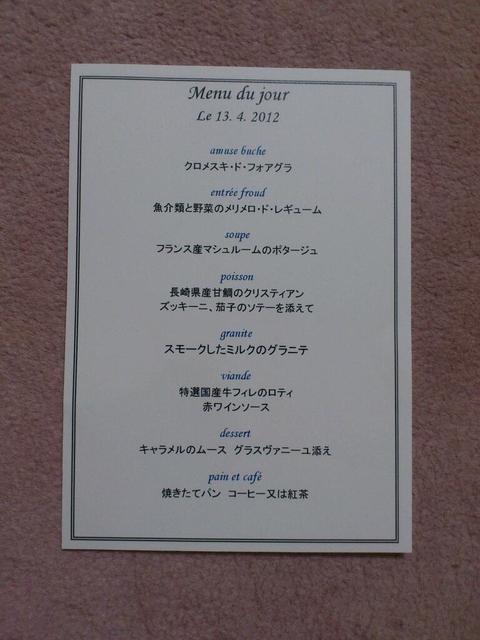 Menu du jour
Le 13. 4. 2012
amuse buche
クロメスキ・ド・フォアグラ
entrée froud
魚介類と野菜のメリメロ・ド・レギューム
soupe
フランス産マシュルームのポタージュ
poisson
長崎県産甘鯛のクリスティアン
ズッキーニ、茄子のソテーを添えて
granite
スモークしたミルクのグラニテ
viande
特選国産牛フィレのロティ
赤ワインソース
dessert
キャラメルのムース グラスヴァニーユ添え
pain et café
焼きたてパン コーヒー又は紅茶